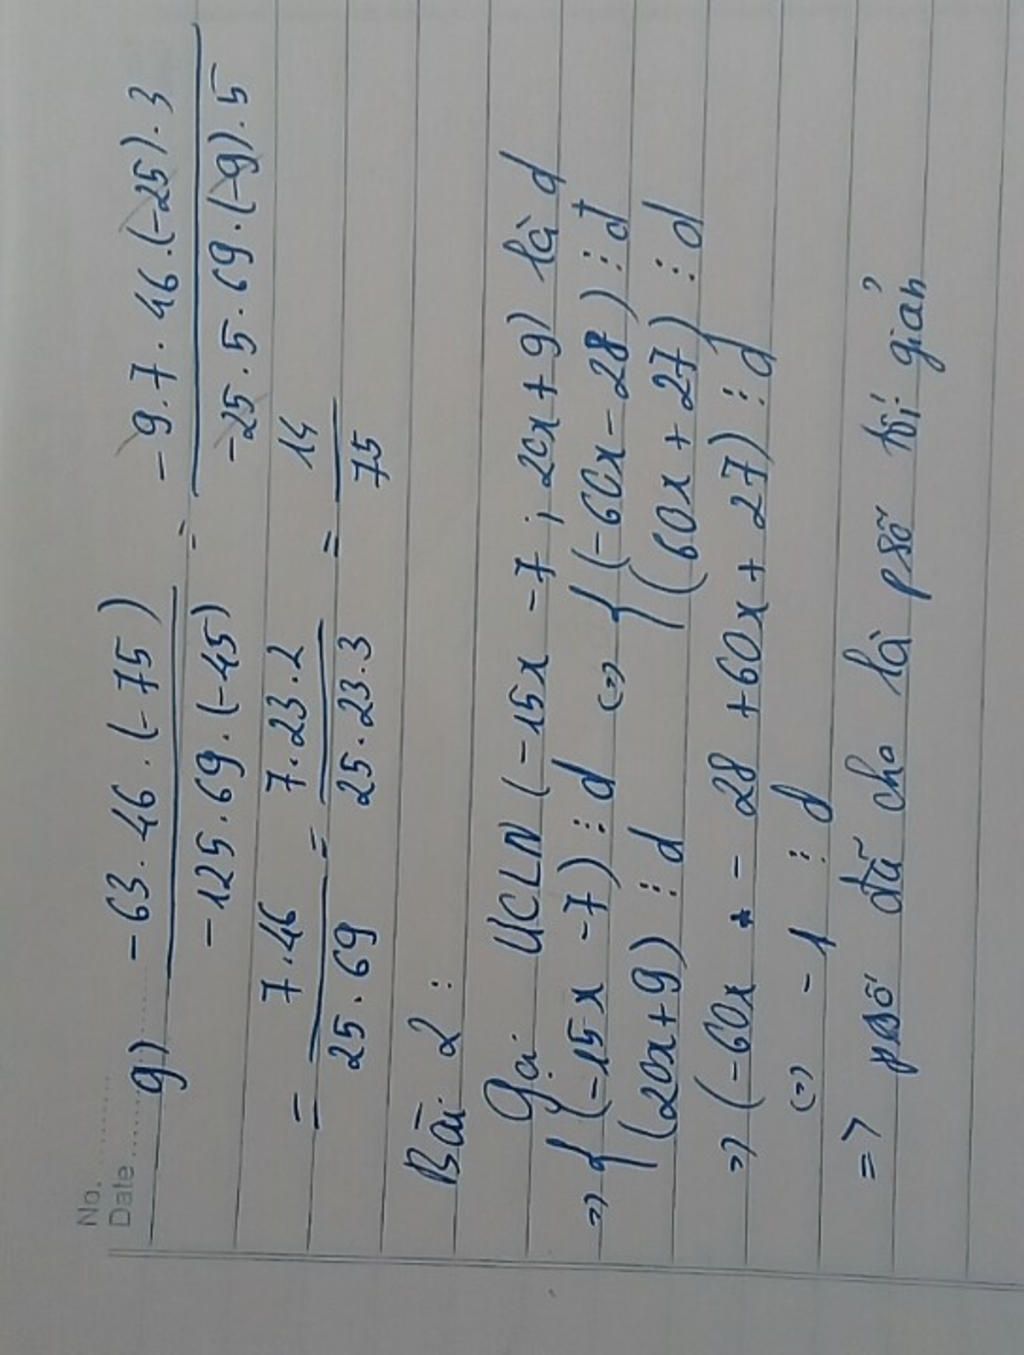 No.
Date
g) -63.46.(-75) / -125.69.(-45) = -9.7.46.(-25).3 / -25.5.69.(-9).5
= 7.46 / 25.69 = 7.23.2 / 25.23.3 = 14 / 75
Bài 2:
Gọi ƯCLN (-15x -7; 20x+9) là d
=> { (-15x -7) ⋮ d <=> { (-60x - 28) ⋮ d
(20x+9) ⋮ d (60x + 27) ⋮ d
=> (-60x - 28 + 60x + 27) ⋮ d
<=> -1 ⋮ d
=> psố đã cho là psố tối giản